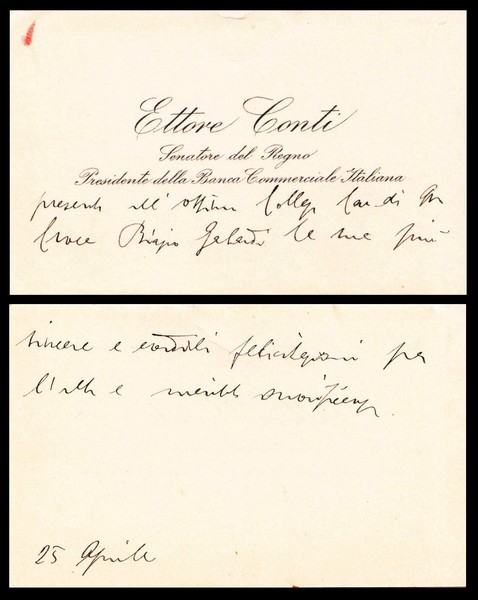 Ettore Conti
Senatore del Regno
Presidente della Banca Commerciale Italiana
presenta all'ottimo Collega Cav. di Gr.
Croce Biagio Gabardi le sue più
sincere e cordiali felicitazioni per
l'alta e meritata onorificenza.
25 Aprile